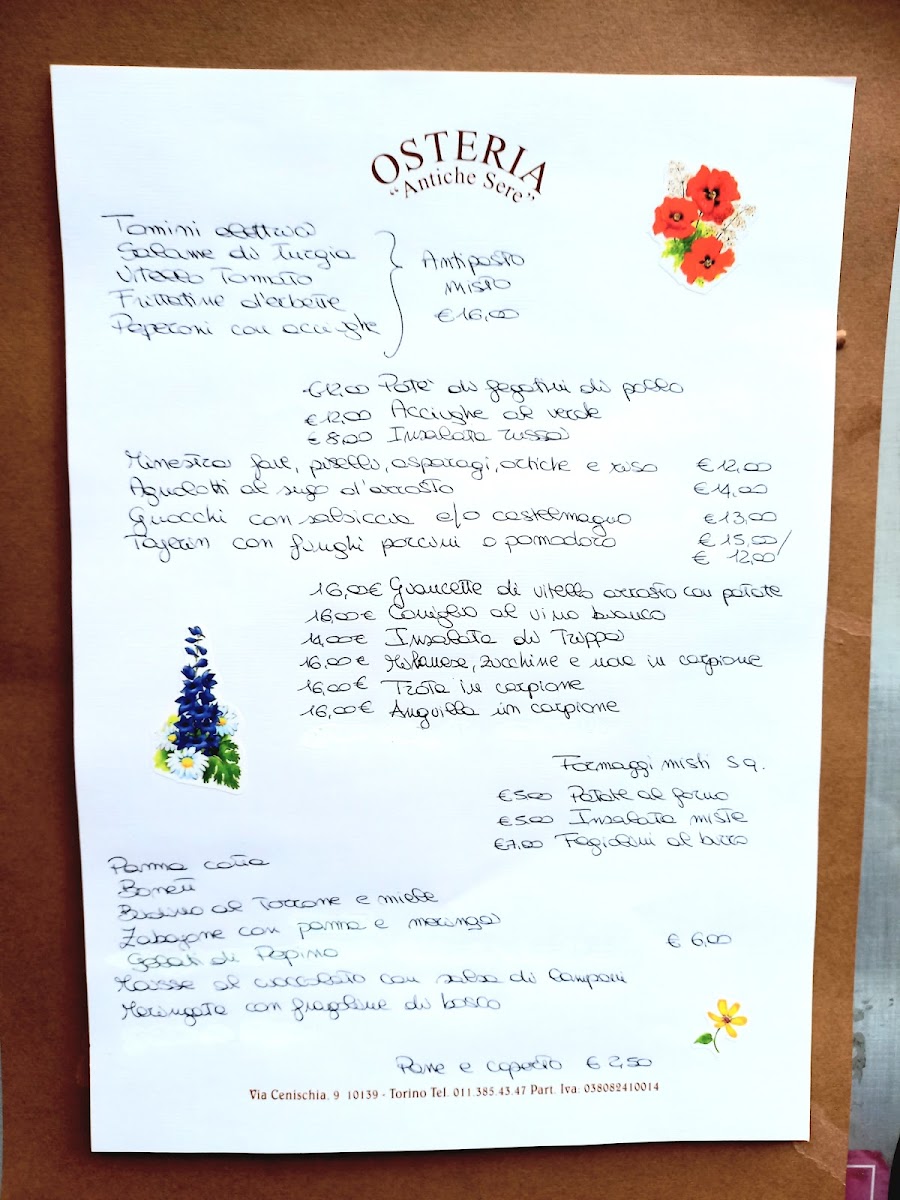 OSTERIA
"Antiche Sere"
Tomini elettrici
Salame di Turgia
Vitello Tonnato
Frittatine d'erbette
Peperoni con acciughe
Antipasto
misto
€16,00
€12,00 Patè di fegatini di pollo
€12,00 Acciughe al verde
€8,00 Insalata russa
Minestra fave, piselli, asparagi, ortiche e riso €12,00
Agnolotti al sugo d'arrosto €14,00
Gnocchi con salsiccia e/o castelmagno €13,00
Tajarin con funghi porcini o pomodoro €15,00/
€ 12,00
16,00€ Guancette di vitello arrosto con patate
16,00€ Coniglio al vino bianco
14,00€ Insalata di Trippa
16,00€ Milanese, zucchine e uova in carpione
16,00€ Trota in carpione
16,00€ Anguilla in carpione
Formaggi misti S q.
€5,00 Patate al forno
€5,00 Insalata mista
€7,00 Fagiolini al burro
Panna cotta
Bonett
Budino al Torrone e miele
Zabajone con panna e meringa
€ 6,00
Gelati di Pepino
Mousse al cioccolato con salsa di lamponi
Meringata con fragoline di bosco
Pane e coperto € 2,50
Via Cenischia, 9 10139 - Torino Tel. 011.385.43.47 Part. Iva: 038082410014